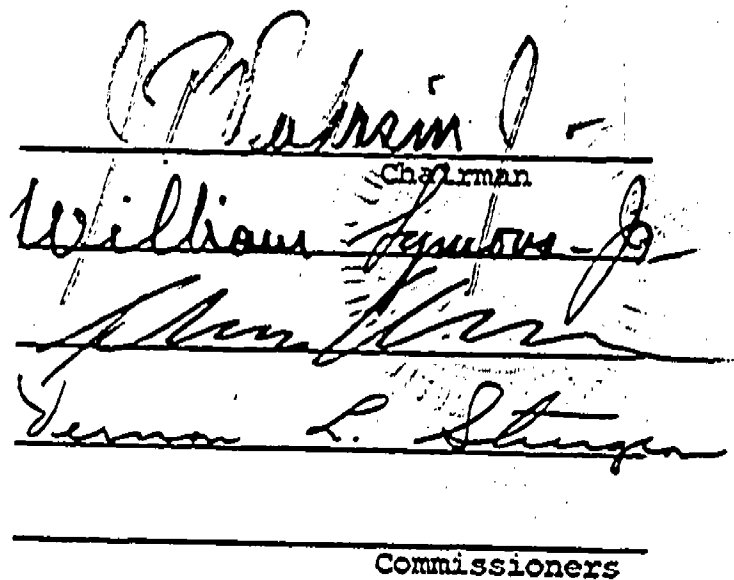 J P Vukasin Jr
Chairman
William Symons Jr.
Vernon L. Sturgeon
Commissioners